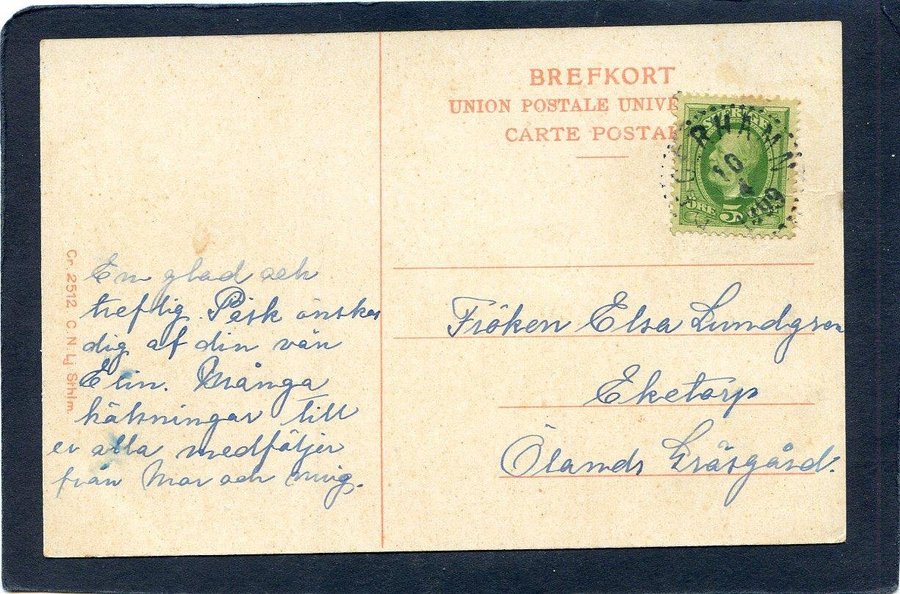 BREFKORT
UNION POSTALE UNIVE
CARTE POSTA
SVERIGE
ÖRE 5
10
4
En glad och
treflig Påsk önskas
dig af din vän
Elin. Många
hälsningar till
er alla medföljer
från Mor och mig.
Fröken Elsa Lundgren
Eketorp
Ölands Gräsgård.
Cr. 2512. C. N. Lj. Sthlm.